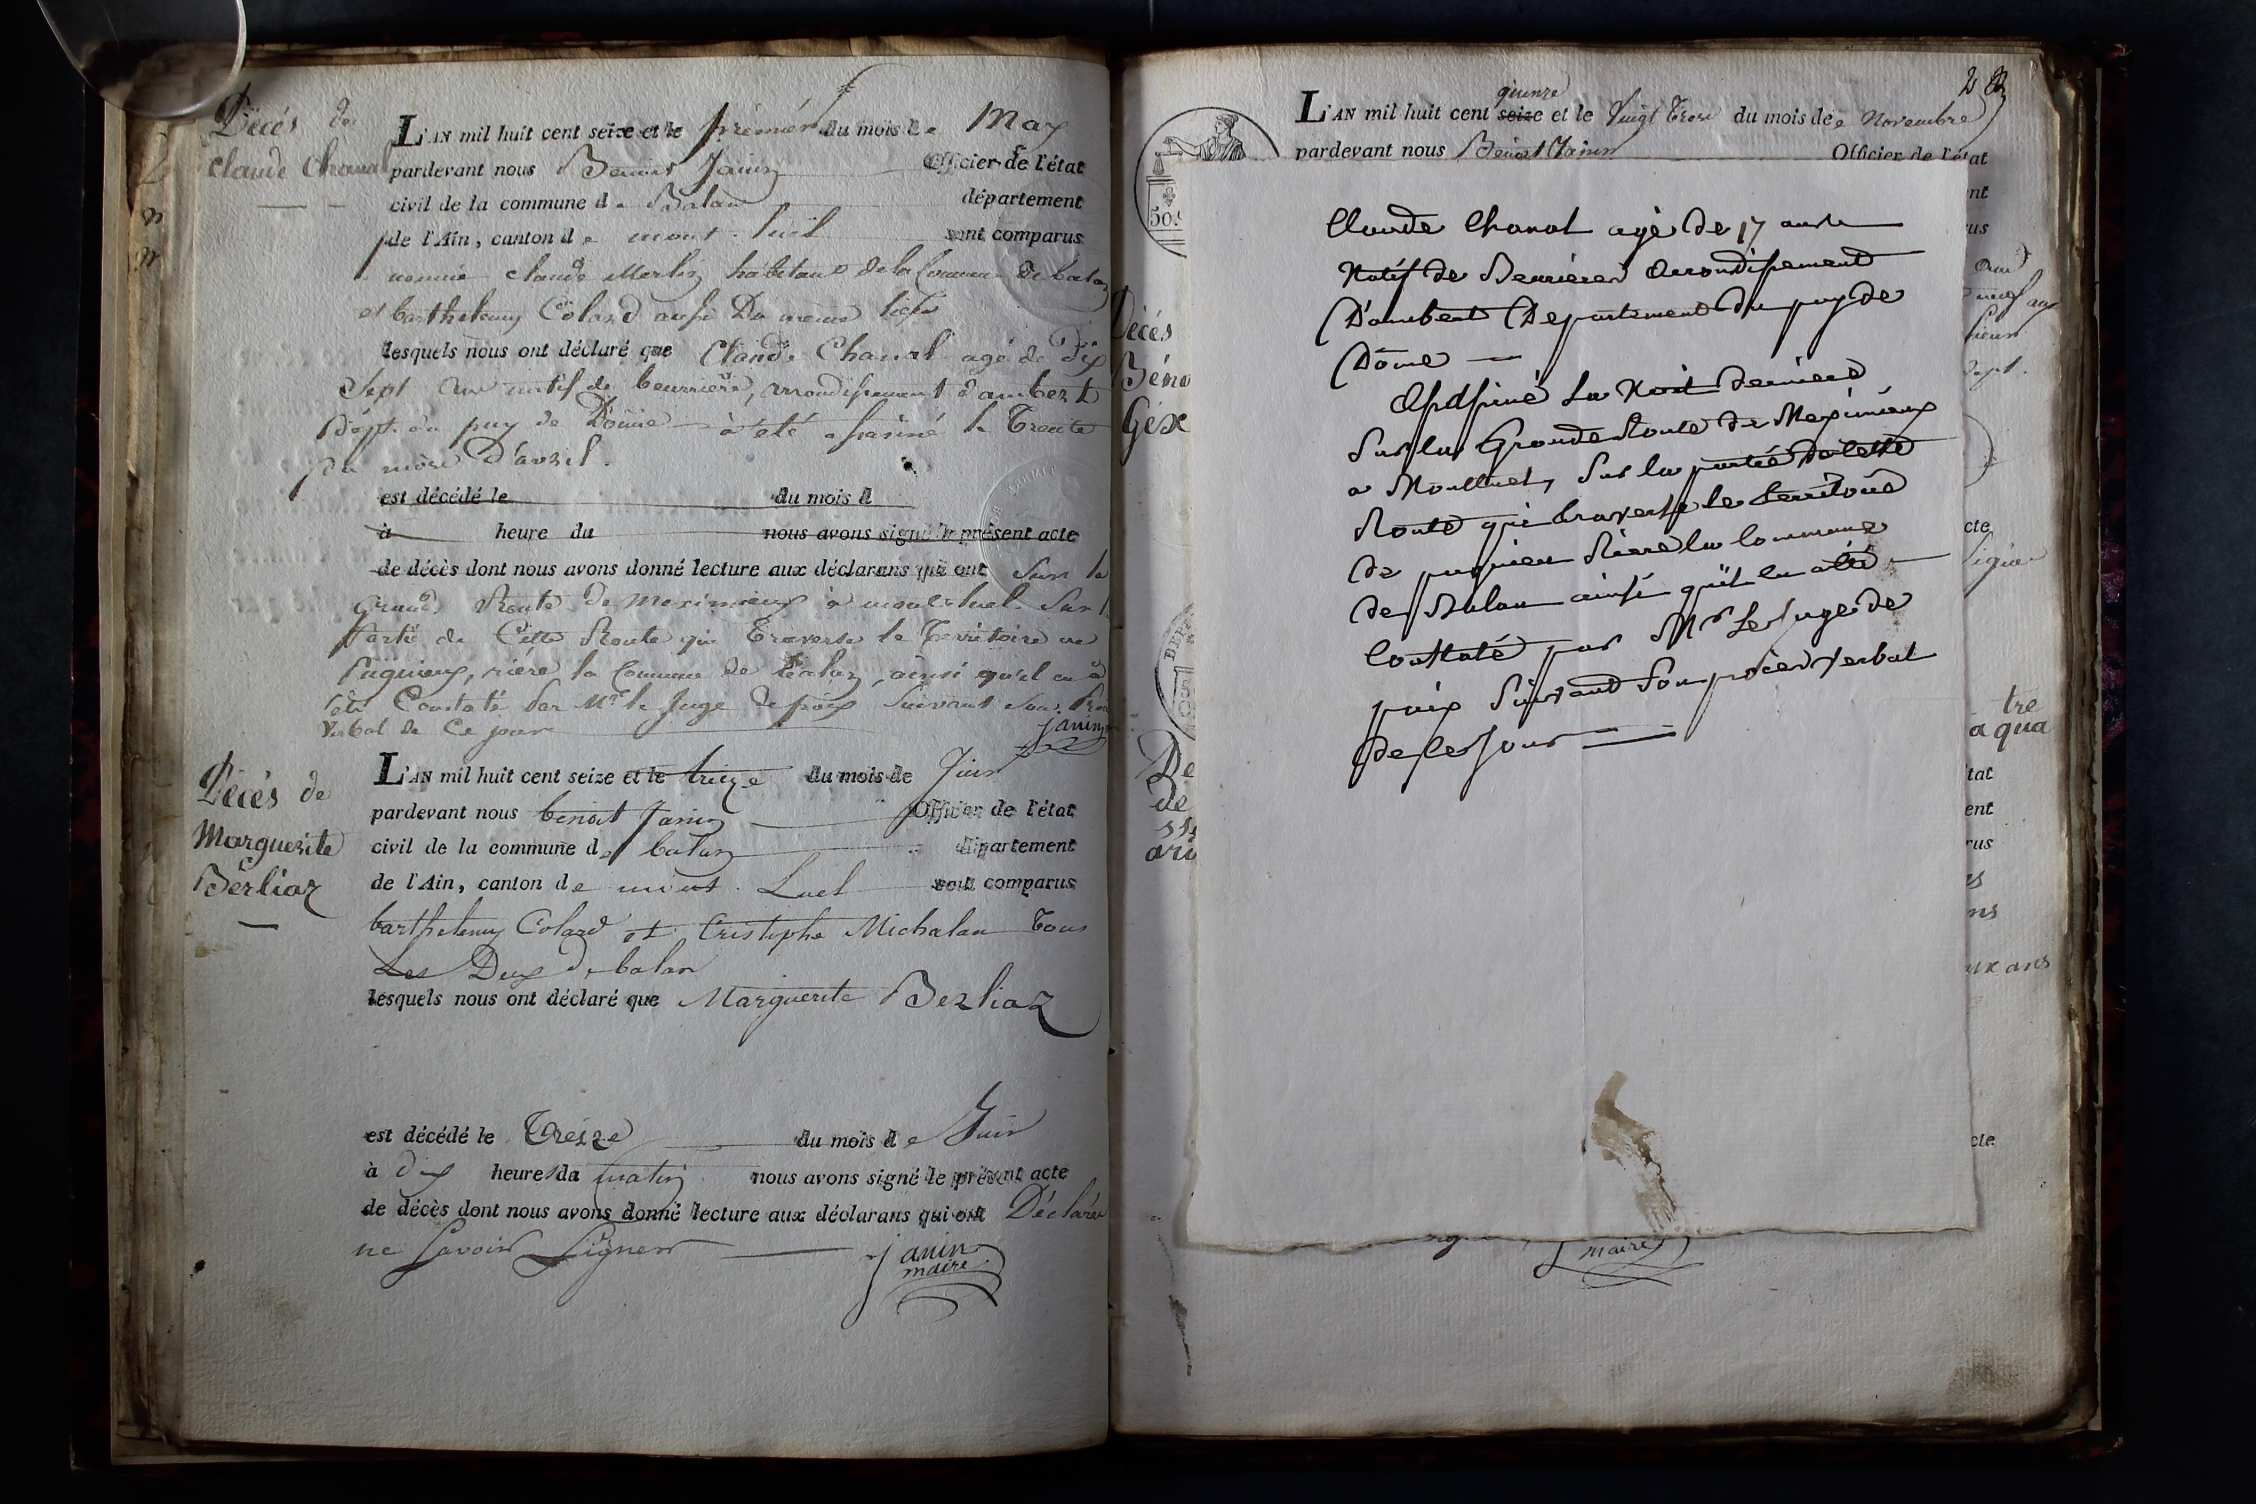 Décés de
Claude Chanal
L'AN mil huit cent seize et le premier du mois de May
pardevant nous Benoit Janin Officier de l'état
civil de la commune de Balan département
de l'Ain, canton de mont-luel sont comparus
claude Merlin habitant de la Commune de balan
et barthelemy Coland aussi Du meme lieu
lesquels nous ont déclaré que Claude Chanal agé de Dix
Sept ans natif de beurrieres, arrondissement d'ambert
Dépt. du puy de Dôme à été assasiné le Trente
du mois d'avril.
est décédé le du mois d
à heure du nous avons signé le présent acte
de décès dont nous avons donné lecture aux déclarans qui ont Sur la
Grande Route de Meximieux à mont-luel Sur la
Partie de Cette Route qui Traverse le Territoire de
Pugnieux, riére la Commune de Balan, ainsi qu'il en à
été Constaté par Mr le Juge de paix Suivant son Procé
Verbal de Ce jour
janin
Décés de
Marguerite
Berliaz
L'AN mil huit cent seize et le trieze du mois de Juin
pardevant nous benoit Janin Officier de l'état
civil de la commune de balan département
de l'Ain, canton de mont Luel sont comparus
barthelemy Colard et Cristophe Michalan Tous
Les Deux de balan
lesquels nous ont déclaré que Marguerite Berliaz
est décédé le Treize du mois de Juin
à dix heures du matin nous avons signé le présent acte
de décès dont nous avons donné lecture aux déclarans qui ont Déclaré
ne Savoir Signer
janin
maire
L'AN mil huit cent seize quinze et le Vingt Trois du mois de Novembre
pardevant nous Benoit Janin Officier de l'état
Claude Chanal agé de 17 ans
Natif de Beurieres Arrondissement
D'ambert Departement du puy de
Dôme
Assassiné La Nuit derniere
Sur la Grande Route de Meximieux
a Montluel, Sur la partie de cette
Route qui traverse le territoire
de pugnieu Rierre la Commune
de Balan ainsi qu'il en a été
Constaté par Mr Le Juge de
paix Suivant Son procés verbal
de Ce Jour
Décés
Béno
Géx
maire